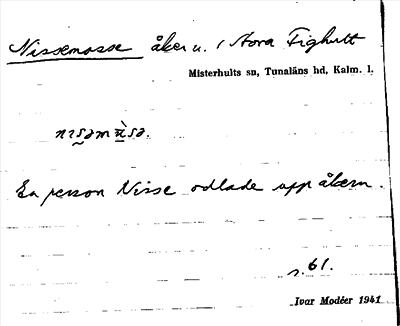 Nissemosse åker u. / Stora Fighult
Misterhults sn, Tunaläns hd, Kalm. l.
En person Nisse odlade upp åkern.
s. 61.
Ivar Modéer 1941